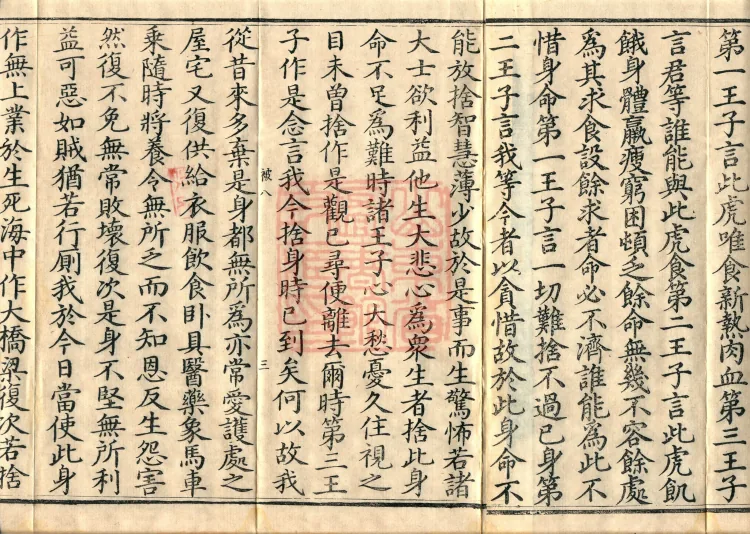 第一王子言此虎唯食新熱肉血第三王子
言君等誰能與此虎食第二王子言此虎飢
餓身體羸瘦窮困頓乏餘命無幾不容餘處
為其求食設餘求者命必不濟誰能為此不
惜身命第一王子言一切難捨不過己身第
二王子言我等今者以貪惜故於此身命不
能放捨智慧薄少故於是事而生驚怖若諸
大士欲利益他生大悲心為衆生者捨此身
命不足為難時諸王子心大愁憂久住視之
目未曾捨作是觀已尋便離去爾時第三王
子作是念言我今捨身時已到矣何以故我
被八 三
從昔來多棄是身都無所為亦常愛護處之
屋宅又復供給衣服飲食卧具醫藥象馬車
乘隨時將養令無所乏而不知恩反生怨害
然復不免無常敗壞復次是身不堅無所利
益可惡如賊猶若行廁我於今日當使此身
作無上業於生死海中作大橋梁復次若捨